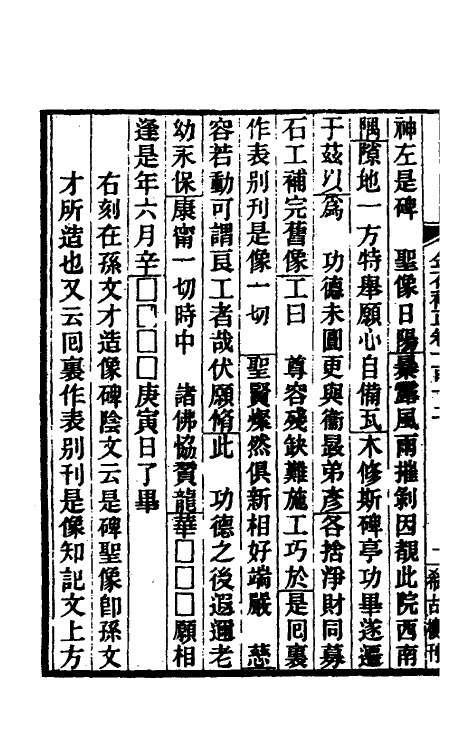 神左是碑　聖像日陽暴露風雨摧剝因覩此院西南
隅隙地一方特舉願心自備瓦木修斯碑亭功畢遂遷
于茲以爲　功德未圓更與衞最弟彥各捨淨財同募
石工補完舊像工曰　尊容殘缺難施工巧於是囘裏
作表別刊是像一切　聖賢燦然俱新相好端嚴　慈
容若動可謂良工者哉伏願脩此　功德之後遐邇老
幼永保康甯一切時中　諸佛協贊龍華□□□願相
逢是年六月辛□□□□庚寅日了畢
右刻在孫文才造像碑陰文云是碑聖像卽孫文
才所造也又云囘裏作表別刊是像知記文上方
一百十二
希古樓刊